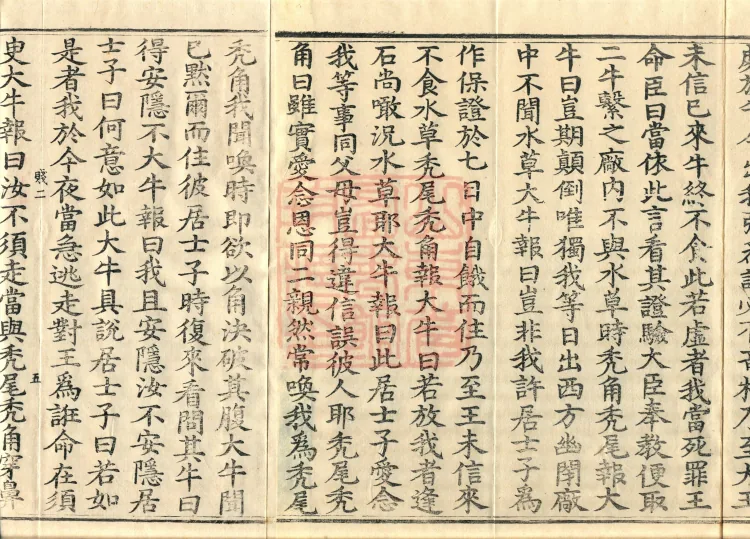 未信已來牛終不食此若虛者我當死罪王
命臣曰當依此言看其證驗大臣奉教便取
二牛繫之廠內不與水草時禿角禿尾報大
牛曰豈期顛倒唯獨我等日出西方幽閉廠
中不聞水草大牛報曰豈非我許居士子為
作保證於七日中自餓而住乃至王未信來
不食水草禿尾禿角報大牛曰若放我者逢
石尚噉況水草耶大牛報曰此居士子愛念
我等事同父母豈得違信誤彼人耶禿尾禿
角曰雖實愛念恩同二親然常喚我為禿尾
禿角我聞喚時即欲以角決破其腹大牛聞
已默爾而住彼居士子時復來看問其牛曰
得安隱不大牛報曰我且安隱汝不安隱居
士子曰何意如此大牛具說居士子曰若如
是者我於今夜當急逃走對王為誑命在須
賤二 五
臾大牛報曰汝不須走當與禿尾禿角穿鼻